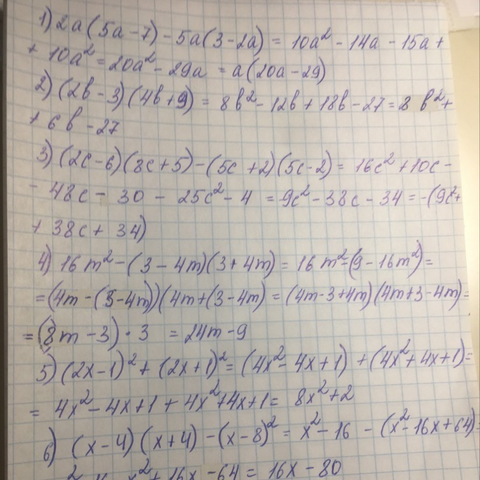 1) 2a(5a-7) - 5a(3-2a) = 10a² - 14a - 15a +
+ 10a² = 20a² - 29a = a(20a-29)
2) (2b-3)(4b+9) = 8b² - 12b + 18b - 27 = 8b² +
+ 6b - 27
3) (2c-6)(8c+5) - (5c+2)(5c-2) = 16c² + 10c -
- 48c - 30 - 25c² - 4 = 9c² - 38c - 34 = -(9c² +
+ 38c + 34)
4) 16m² - (3-4m)(3+4m) = 16m² - (9-16m²) =
= (4m-(3-4m))(4m+(3-4m) = (4m-3+4m)(4m+3-4m) =
= (8m-3)·3 = 24m-9
5) (2x-1)² + (2x+1)² = (4x²-4x+1) + (4x²+4x+1) =
= 4x² - 4x + 1 + 4x² + 4x + 1 = 8x² + 2
6) (x-4)(x+4) - (x-8)² = x² - 16 - (x² - 16x + 64) =
x² + 16x - 64 = 16x - 80